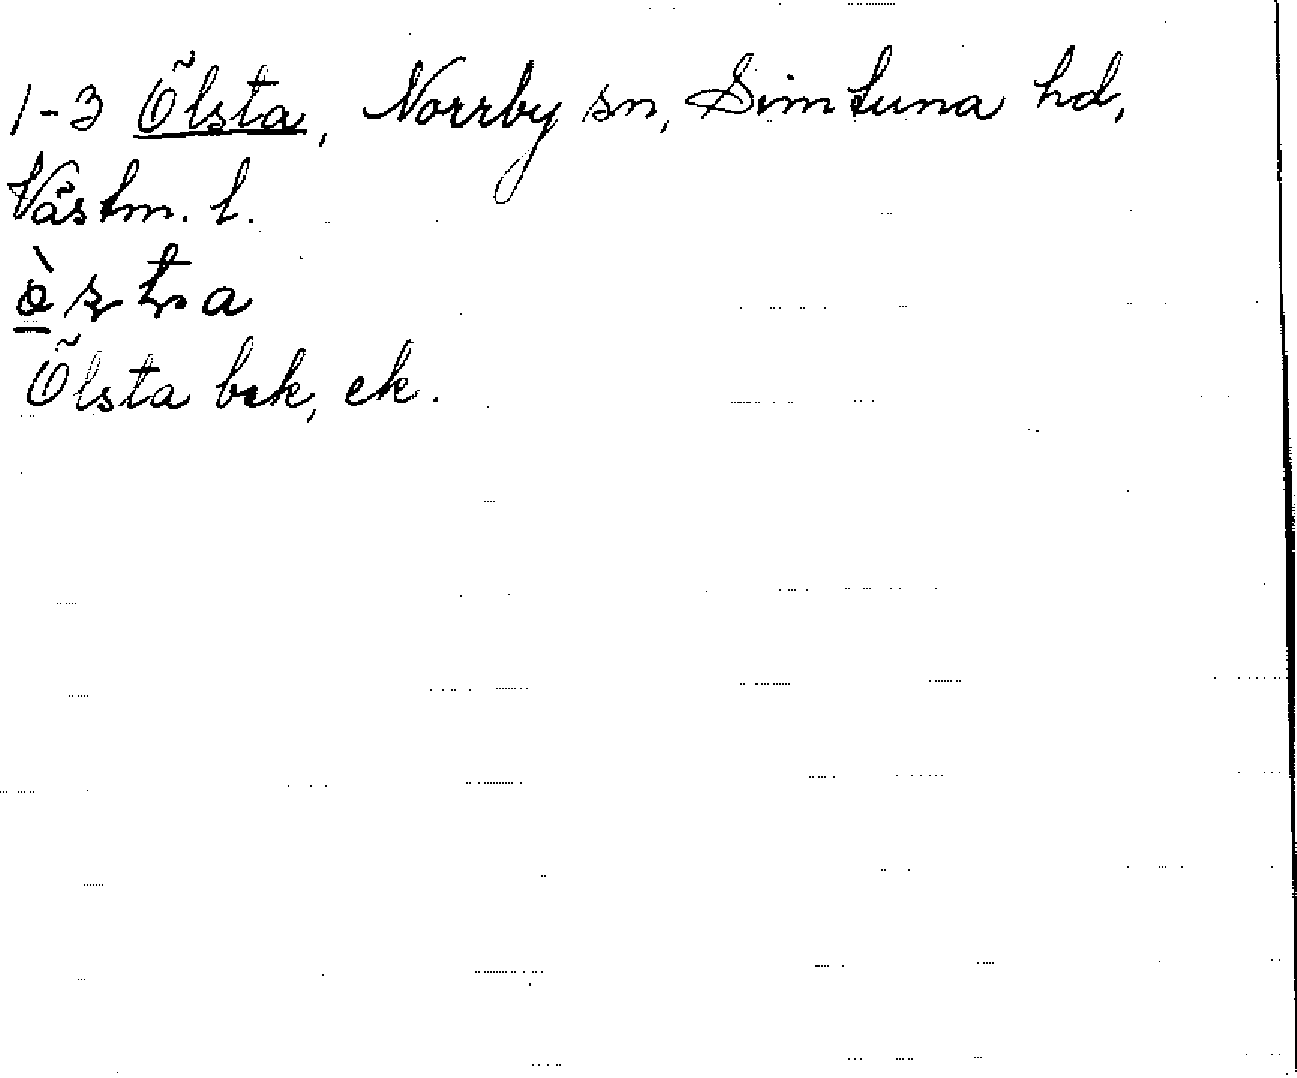 1-3 Ölsta, Norrby sn, Simtuna hd,
Västm. l.
Ölsta bek, ek.